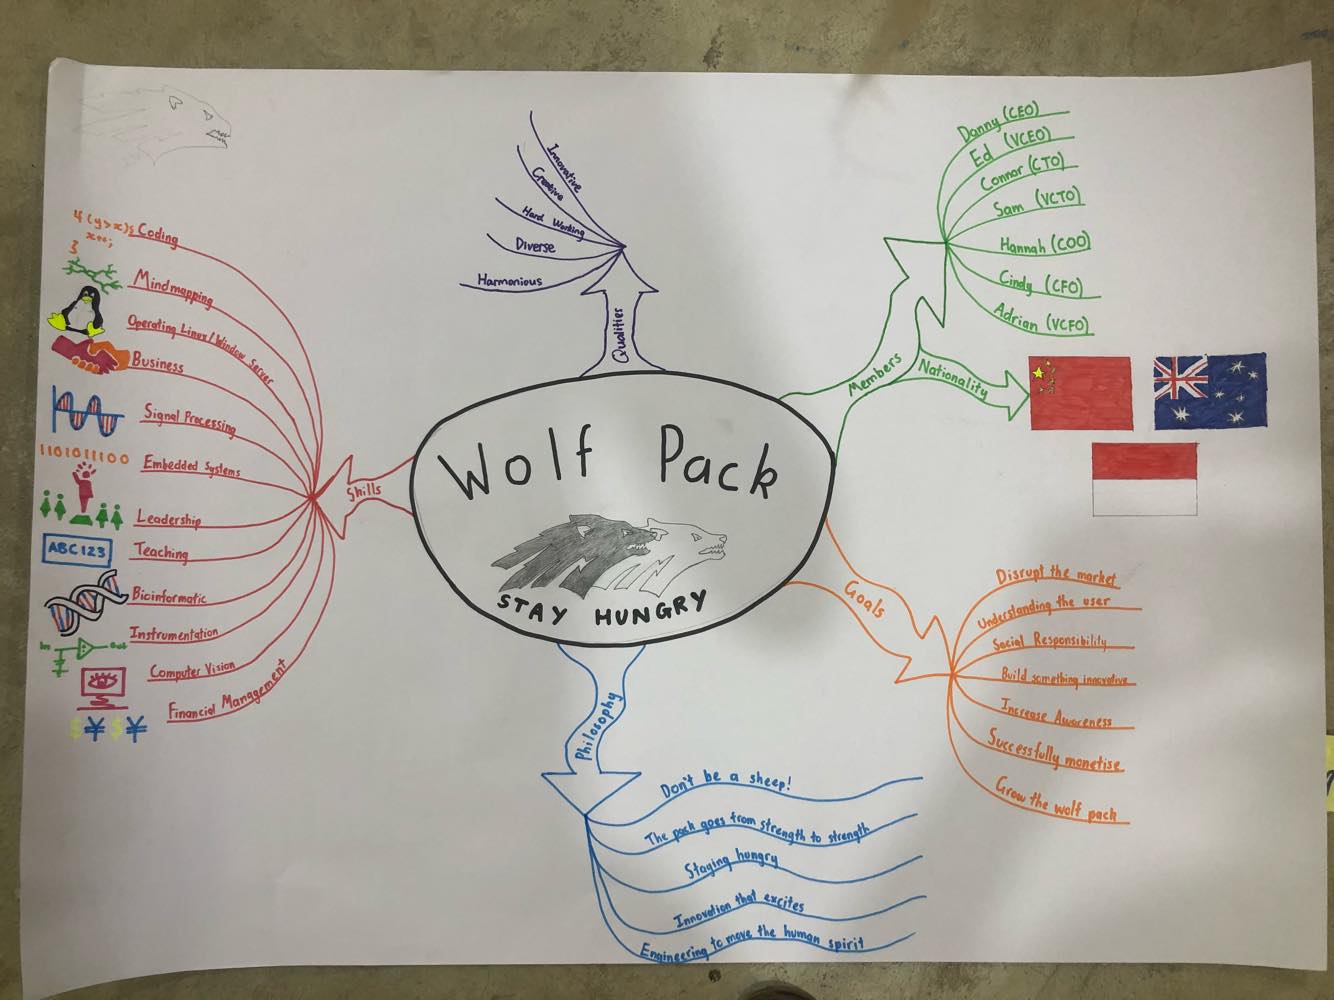 Wolf Pack
STAY HUNGRY
Qualities
Innovative
Creative
Hard Working
Diverse
Harmonious
Members
Danny (CEO)
Ed (VCEO)
Connor (CTO)
Sam (VCTO)
Hannah (COO)
Cindy (CFO)
Adrian (VCFO)
Nationality
Goals
Disrupt the market
Understanding the user
Social Responsibility
Build something innovative
Increase Awareness
Successfully monetise
Grow the wolf pack
Philosophy
Don't be a sheep!
The pack goes from strength to strength
Staying hungry
Innovation that excites
Engineering to move the human spirit
Skills
if (y>x){
x++;
}
Coding
Mindmapping
Operating Linux/Window Server
Business
Signal Processing
1101011100
Embedded Systems
Leadership
ABC123
Teaching
Bioinformatic
Instrumentation
In
Out
Computer Vision
Financial Management
$¥$¥